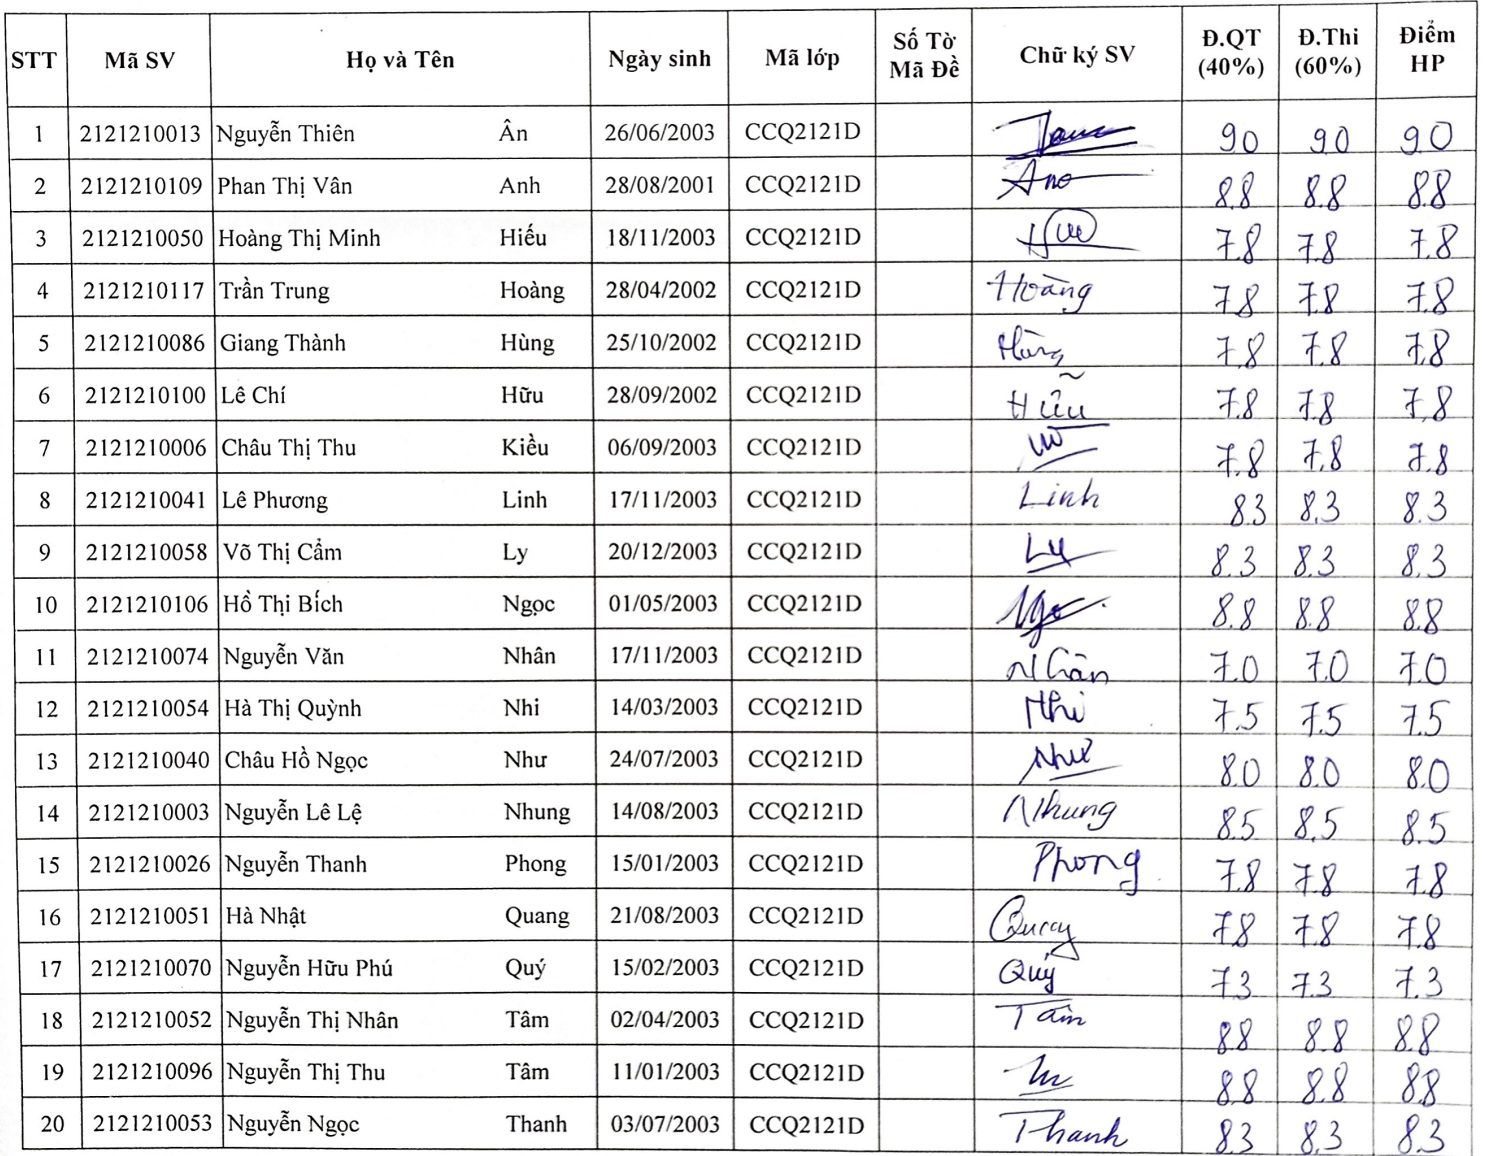 STT Mã SV Họ và Tên Ngày sinh Mã lớp Số Tờ Mã Đề Chữ ký SV Đ.QT (40%) Đ.Thi (60%) Điểm HP
1 2121210013 Nguyễn Thiên Ân 26/06/2003 CCQ2121D 90 90 90
2 2121210109 Phan Thị Vân Anh 28/08/2001 CCQ2121D 8.8 8.8 8.8
3 2121210050 Hoàng Thị Minh Hiếu 18/11/2003 CCQ2121D 7.8 7.8 7.8
4 2121210117 Trần Trung Hoàng 28/04/2002 CCQ2121D Hoàng 7.8 7.8 7.8
5 2121210086 Giang Thành Hùng 25/10/2002 CCQ2121D Hùng 7.8 7.8 7.8
6 2121210100 Lê Chí Hữu 28/09/2002 CCQ2121D Hữu 7.8 7.8 7.8
7 2121210006 Châu Thị Thu Kiều 06/09/2003 CCQ2121D 7.8 7.8 7.8
8 2121210041 Lê Phương Linh 17/11/2003 CCQ2121D Linh 83 8.3 8.3
9 2121210058 Võ Thị Cẩm Ly 20/12/2003 CCQ2121D Ly 8.3 8.3 8.3
10 2121210106 Hồ Thị Bích Ngọc 01/05/2003 CCQ2121D 8.8 8.8 8.8
11 2121210074 Nguyễn Văn Nhân 17/11/2003 CCQ2121D Nhân 7.0 7.0 7.0
12 2121210054 Hà Thị Quỳnh Nhi 14/03/2003 CCQ2121D Nhi 7.5 7.5 7.5
13 2121210040 Châu Hồ Ngọc Như 24/07/2003 CCQ2121D Như 8.0 8.0 8.0
14 2121210003 Nguyễn Lê Lệ Nhung 14/08/2003 CCQ2121D Nhung 8.5 8.5 8.5
15 2121210026 Nguyễn Thanh Phong 15/01/2003 CCQ2121D Phong 7.8 7.8 7.8
16 2121210051 Hà Nhật Quang 21/08/2003 CCQ2121D Quang 7.8 7.8 7.8
17 2121210070 Nguyễn Hữu Phú Quý 15/02/2003 CCQ2121D Quý 7.3 7.3 7.3
18 2121210052 Nguyễn Thị Nhân Tâm 02/04/2003 CCQ2121D Tâm 8.8 8.8 8.8
19 2121210096 Nguyễn Thị Thu Tâm 11/01/2003 CCQ2121D 8.8 8.8 8.8
20 2121210053 Nguyễn Ngọc Thanh 03/07/2003 CCQ2121D Thanh 8.3 8.3 8.3